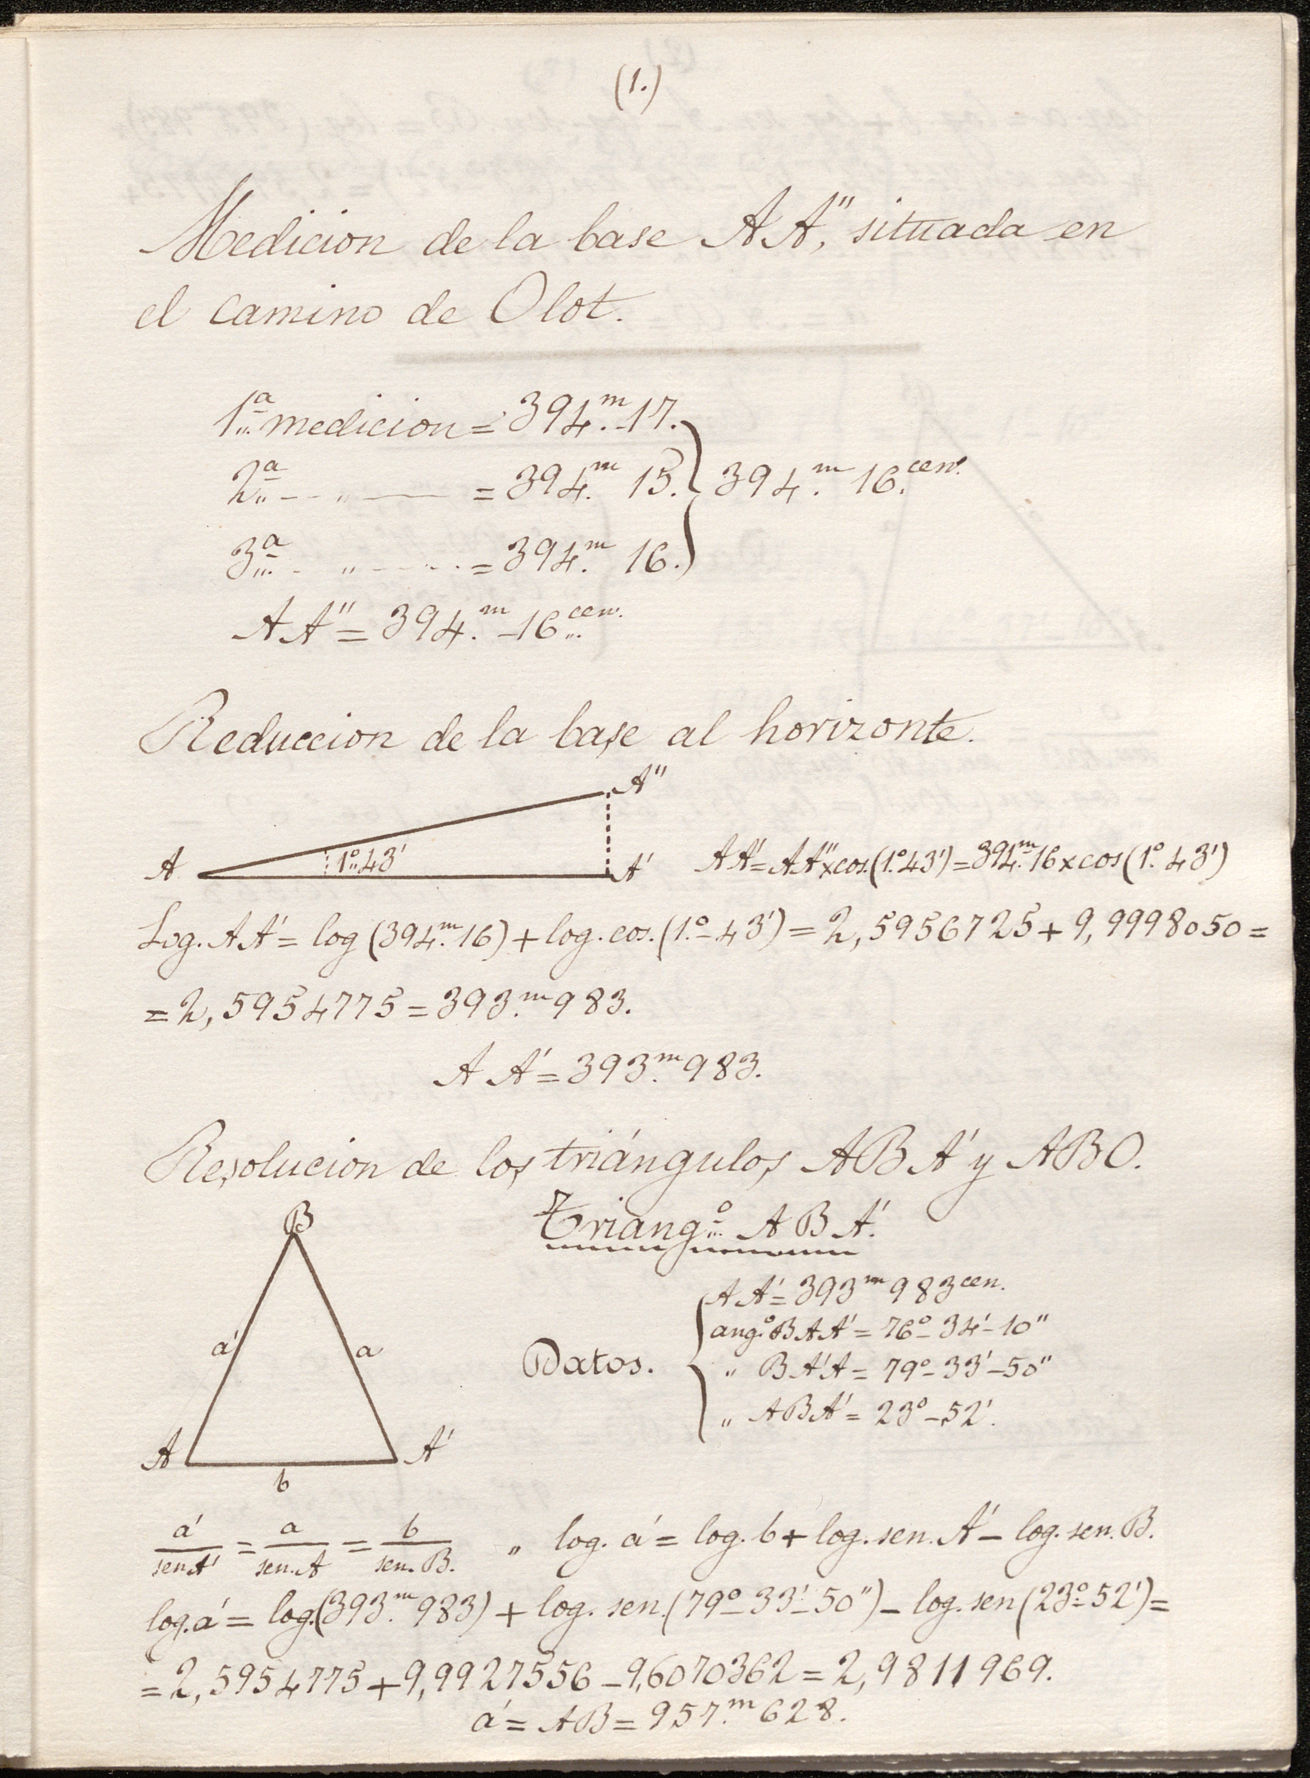 (1.)
Medicion de la base AA", situada en
el camino de Olot.
1.ª medicion = 394.m 17.
2.ª — " — = 394.m 15. } 394.m 16.cen.
3.ª - " - - - = 394.m 16.
AA" = 394.m 16 cen.
Reduccion de la base al horizonte.
A"
A 1º 43' A' AA' = AA" x cos. (1.º 43') = 394.m 16 x cos (1.º 43')
Log. AA' = log (394.m 16) + log. cos. (1.º - 43') = 2,5956725 + 9,9998050 =
= 2,5954775 = 393.m 983.
AA' = 393.m 983.
Resolucion de los triángulos ABA' y ABO.
B
Triang.º ABA'.
AA' = 393m 983 cen.
ang.º BAA' = 76º - 34' - 10"
a' a Datos. " BA'A = 79º - 33' - 50"
" ABA' = 23º - 52'.
A A'
b
a'/sen. A' = a/sen. A = b/sen. B. " log. a' = log. b + log. sen. A' - log. sen. B.
log. a' = log. (393.m 983) + log. sen. (79º - 33' - 50") - log. sen (23º - 52') =
= 2,5954775 + 9,9927556 - 9,6070362 = 2,9811969.
a' = AB = 957.m 628.